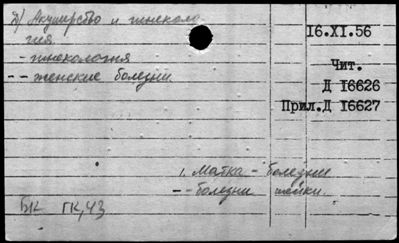 д) Акушерство и гинеколо
гия.
- гинекология
-- женские болезни.
16.XI.56
Чит.
Д 16626
Прил.Д 16627
1. Матка - болезни
-- болезни шейки.
БК ГК,43